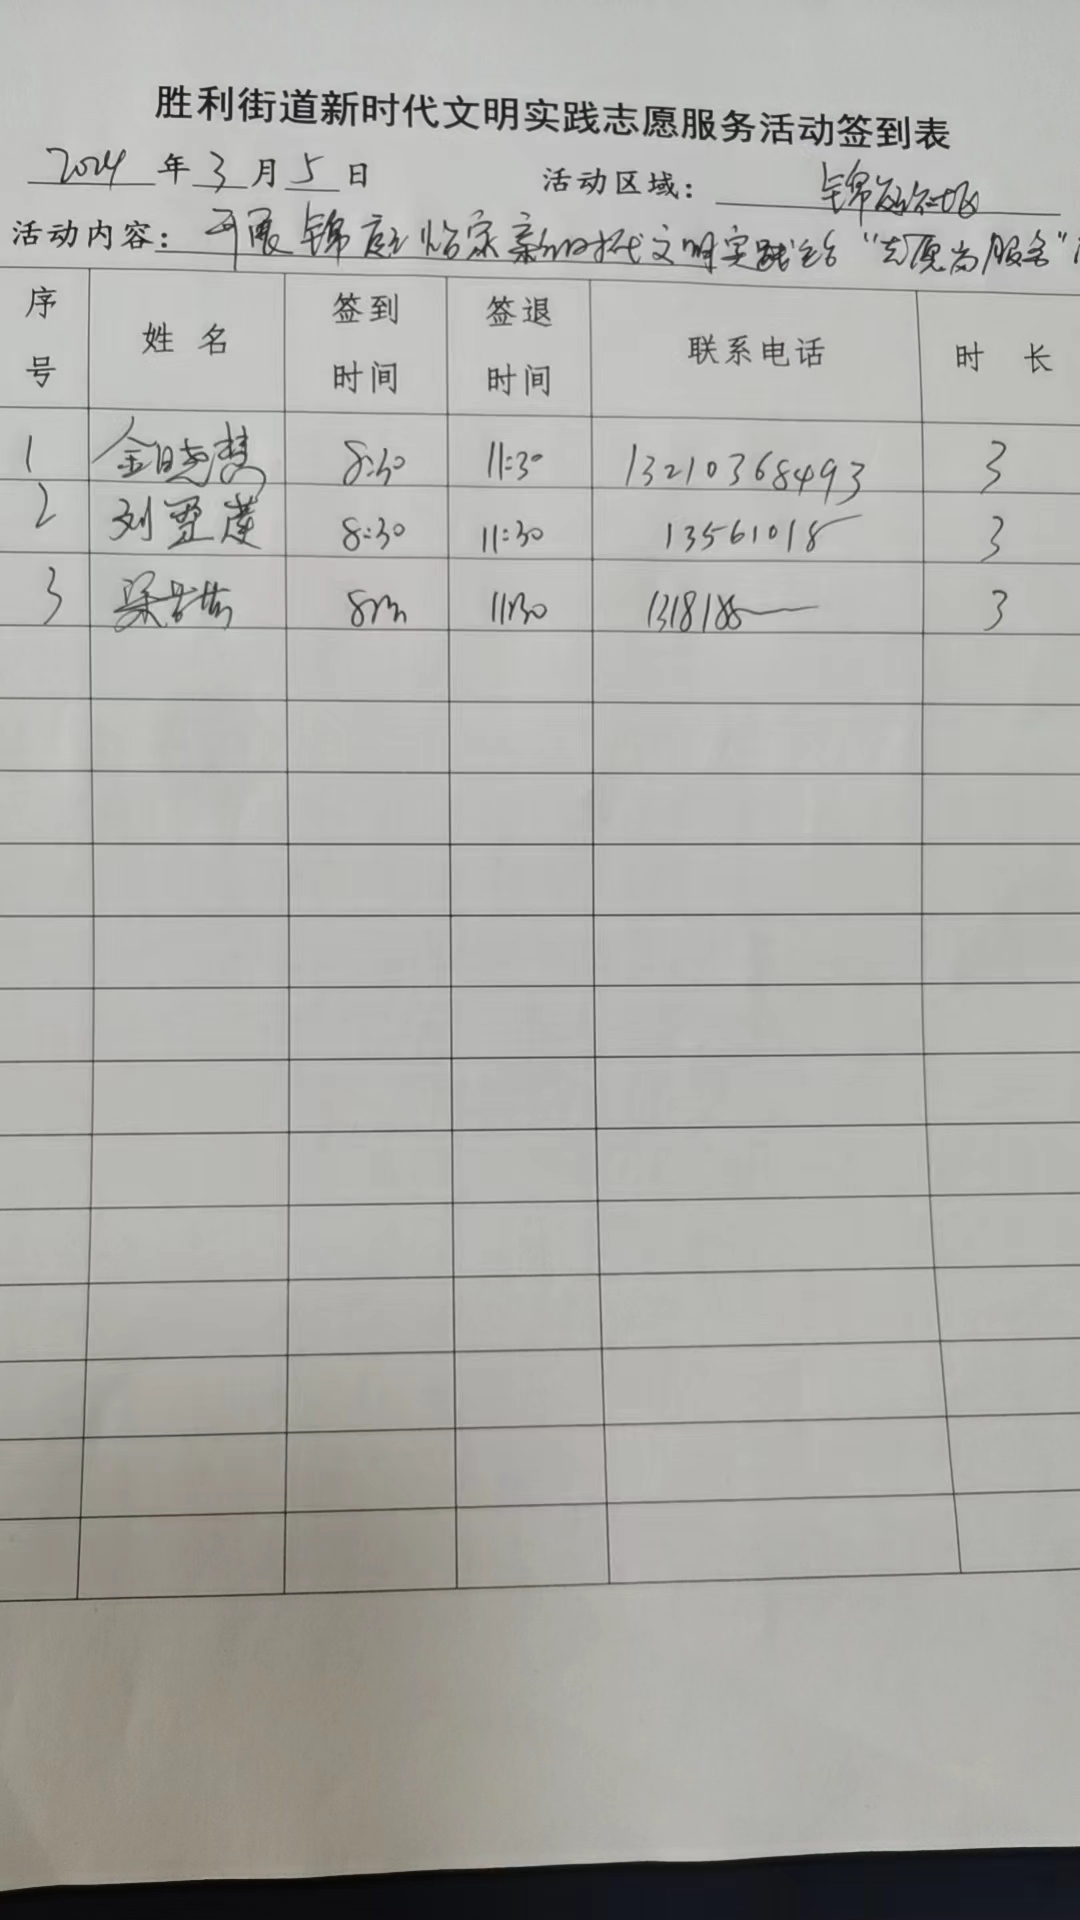 胜利街道新时代文明实践志愿服务活动签到表
2024 年 3 月 5 日 活动区域： 锦庭社区
活动内容： 开展锦庭怡家新时代文明实践站“志愿者服务”
序号 姓名 签到时间 签退时间 联系电话 时长
1 金晓慧 8:30 11:30 13210368493 3
2 刘 8:30 11:30 13561018 3
3 梁 8:30 11:30 1318188 3